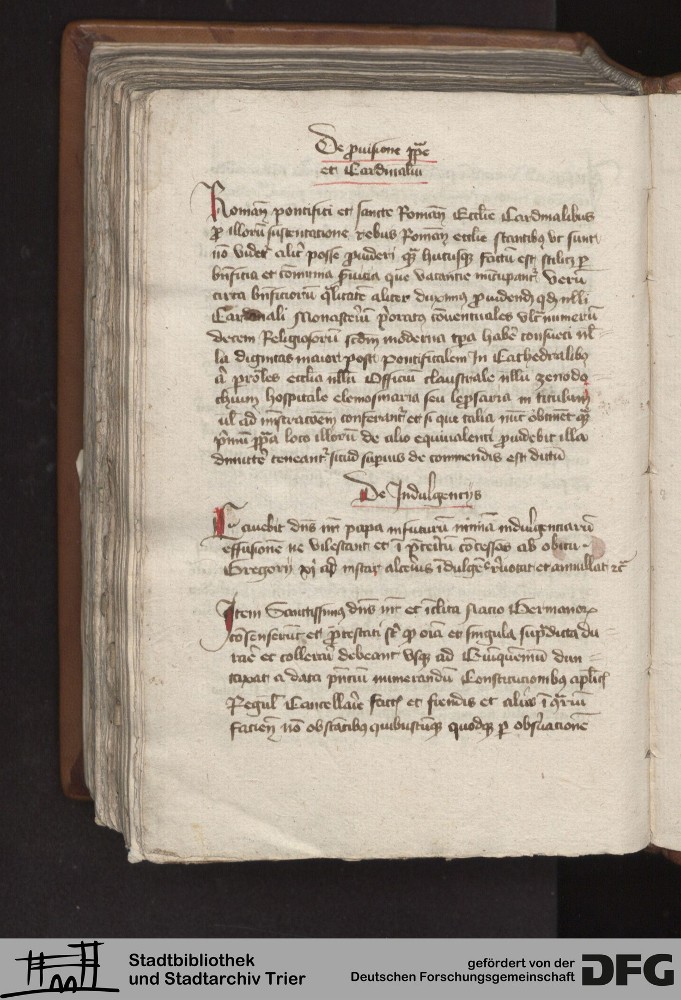 De provisione pape
et Cardinaliu
Romano pontifici et sancte Romane Ecclie Cardinalibus
p illoru sustentatione rebus Romane ecclie stantibus ut sunt
no videt alit posse provideri qua hutusque factu est scilicz p
bnficia et comunia servicia que vacantie nucupant Veru
circa bnficioru qlitate aliter duximus providendu qd nlli
Cardinali Monasteriu prioratus coventuales ultra numeru
decem Religiosoru scdm moderna tpa habere consueti nl
la dignitas maior post pontificalem In Cathedralibus
aut ecclia nllu Officiu claustrale nllu zenodo
chium hospitale elemosinaria seu leprsaria in titulum
ul ad mistracoem conferant et si que talia nuc obtinet
loco illoru de alio equivalenti providebit illa
dimitte teneant sicud supius de commendis est dictu
De Indulgencijs
Cavebit dns nr papa infuturum nimia indulgenciaru
effusione ne vilescant et i pteritu cocessas ab obitu
Gregorij xi ad instar alterius idulgec revocat et annullat etc
Item Sanctissimus dns nr et iclita nacio Germanor
cosenserut et protestati st qd oia et singula supradicta du
rare et tollerari debeant usque ad Quinqueniu dun
taxat a data pntiu numerandu Constitucionibus aplicis
Regul Cancellarie factis et fiendis et aliis
facien no obstatibus quibuscuque quodque p observatione
Stadtbibliothek
und Stadtarchiv Trier
gefördert von der
Deutschen Forschungsgemeinschaft
DFG